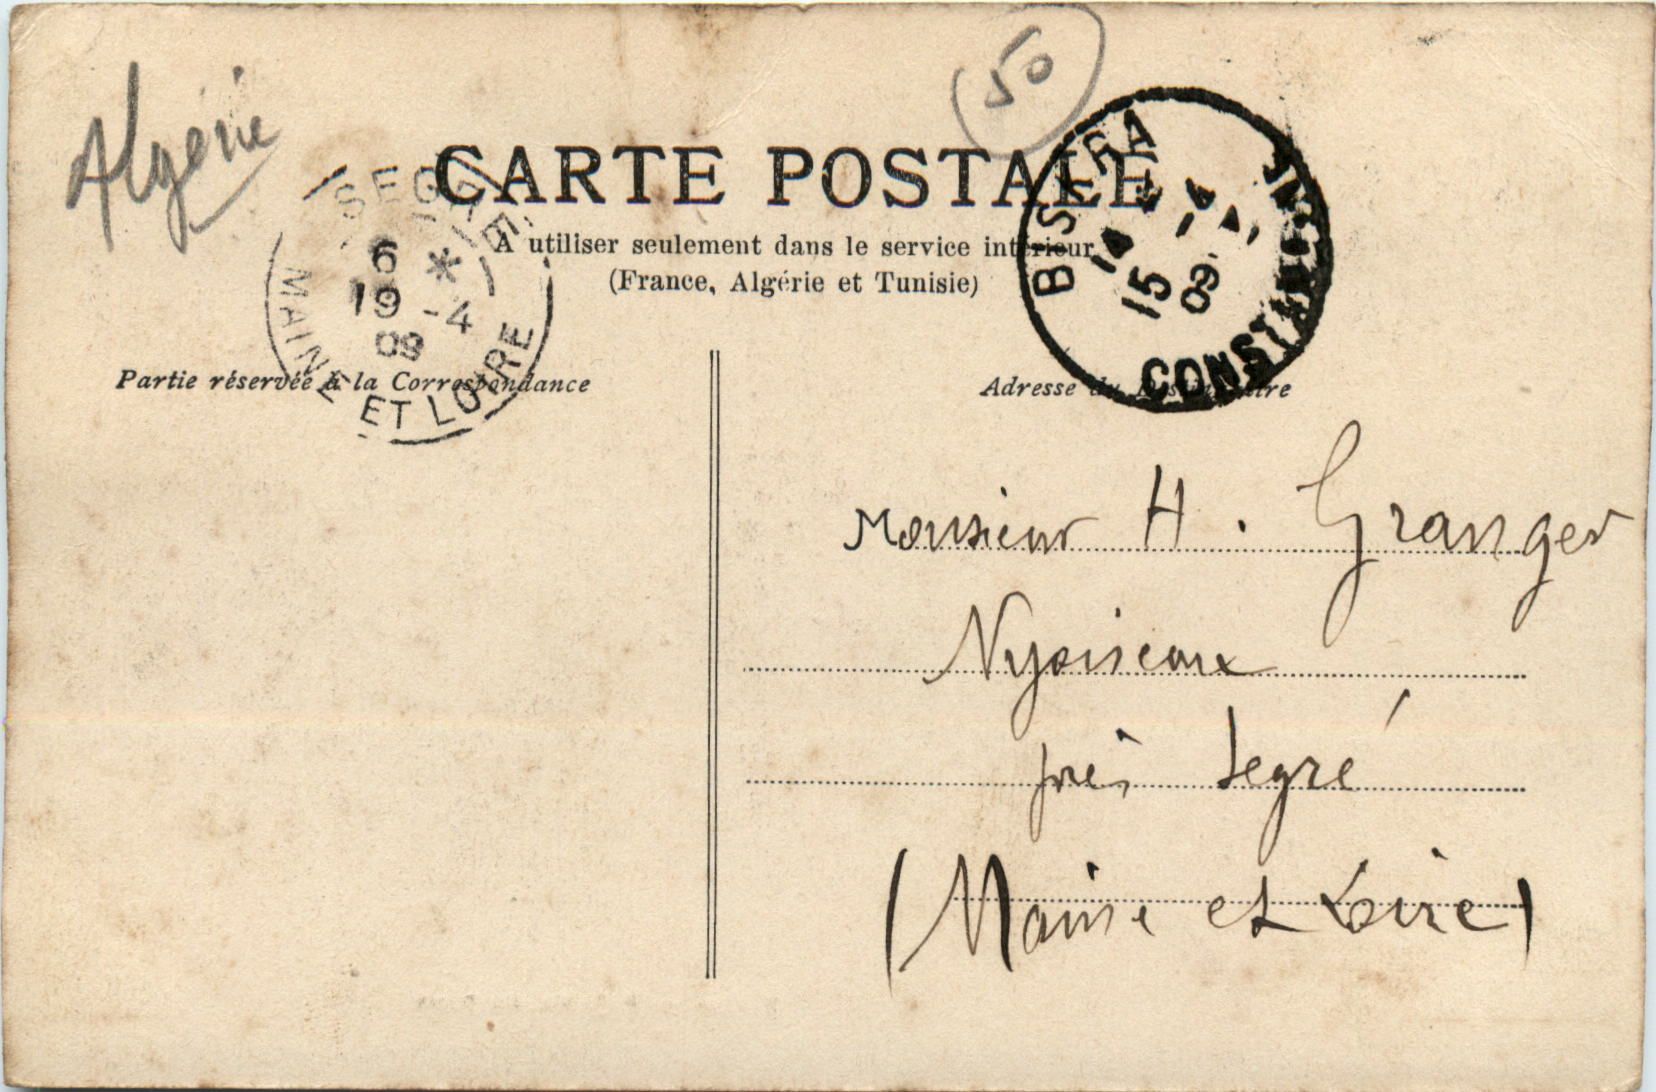 Algérie
50
CARTE POSTALE
A utiliser seulement dans le service intérieur
(France, Algérie et Tunisie)
SEGRÉ
6 *
19 -4
09
MAINE ET LOIRE
BISKRA
15 -4
09
CONSTANTINE
Partie réservée à la Correspondance
Adresse du Destinataire
Monsieur H. Granger
Nyoiseaux
près Segré
(Maine et Loire)